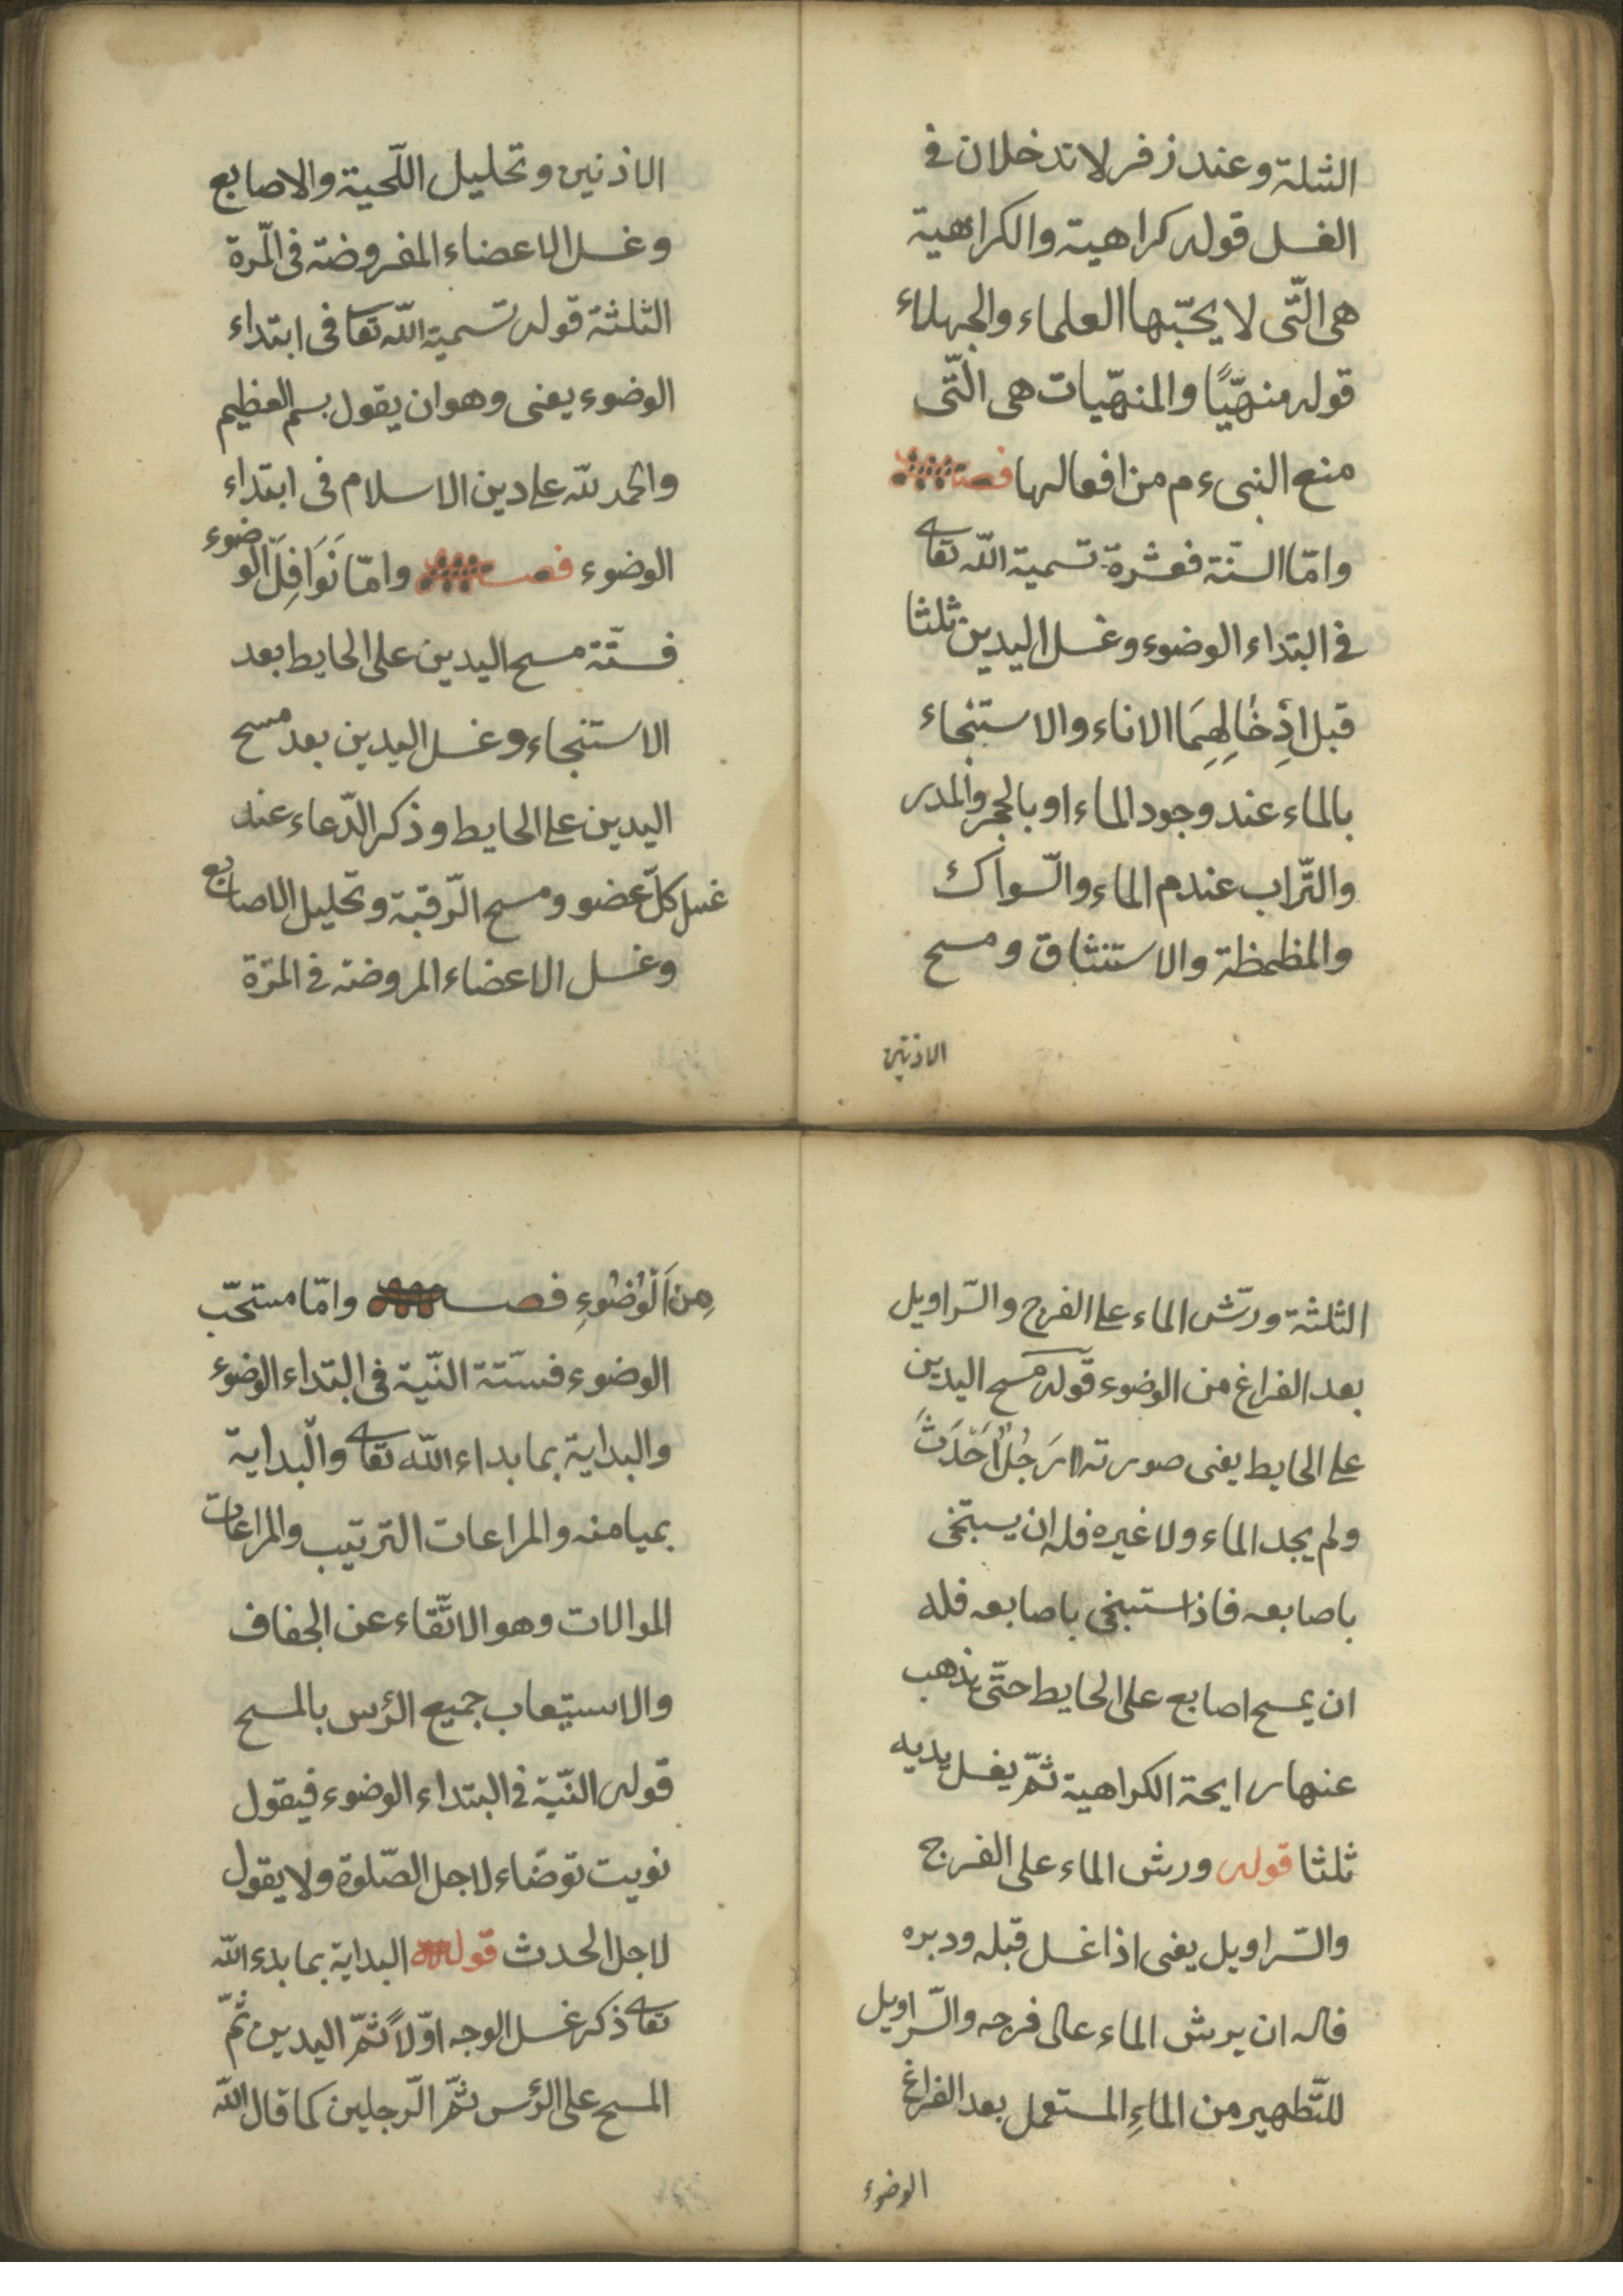 الثلثة وعند زفر لا تدخلان في
الغسل قوله كراهية والكراهية
هى الّتى لا يحّبها العلماء والجهلاء
قوله منهّيًا والمنهّيات هى الّتى
منع النبىء م من افعالها فصل
وامّا السنّة فعشرة تسمية اللّه تعا
في البتداء الوضوء وغسل اليدين ثلثا
قبل اِدْخَالِهِمَا الاناء والاستنجاء
بالماء عند وجود الماء او بالحجر والمدر
والتّراب عندم الماء والسّواك
والمظمظة والاستنثاق ومسح
الاذنين
الاذنين وتخليل اللّحية والاصابع
وغسل الاعضاء المفروضة فى المّرة
الثلثة قوله تسمية اللّه تعا فى ابتداء
الوضوء يعنى وهو ان يقول بسم العظيم
والحمد للّه على دين الاسلام فى ابتداء
الوضوء فصل وامّا نَوَافِلَ الوضوء
فستّة مسح اليدين على الحايط بعد
الاستنجاء وغسل اليدين بعد مسح
اليدين على الحايط وذكر الدّعاء عند
غسل كلّ عضو ومسح الرّقبة وتخليل الاصابع
وغسل الاعضاء المروضة فى المرّة
الثلثة ورشّ الماء على الفرج والسّراويل
بعد الفراغ من الوضوء قوله مسح اليدين
على الحايط يعنى صورته رَجُلٌ اَحْدَثَ
ولم يجد الماء ولا غيره فله ان يستنجى
باصابعه فاذ استنجى باصابعه فله
ان يمسح اصابع على الحايط حتّى يذهب
عنها رايحة الكراهية ثمّ يغسل يديه
ثلثا قوله ورش الماء على الفرج
والسّراويل يعنى اذا غسل قبله ودبره
فاله ان يرش الماء عالى فرجه والسّراويل
للتّطهير من الماءِ المستعمل بعد الفراغ
الوضوء
مِنَ الْوُضُوءِ فصل وامّا مستحّب
الوضوء فستّة النّية فى البتداء الوضوء
والبداية بما بداء اللّه تعا والبداية
بميامنه والمراعات الترتيب والمراعات
الموالات وهو الاتّقاء عن الجفاف
والاستيعاب جميع الرئس بالمسح
قوله النّية فى البتداء الوضوء فيقول
نويت توضّاء لاجل الصّلوة ولا يقول
لاجل الحدث قوله البداية بما بدء اللّه
تعا ذكر غسل الوجه اوّلاً ثمّ اليدين ثمّ
المسح على الرئس ثمّ الرّجلين كما قال اللّه